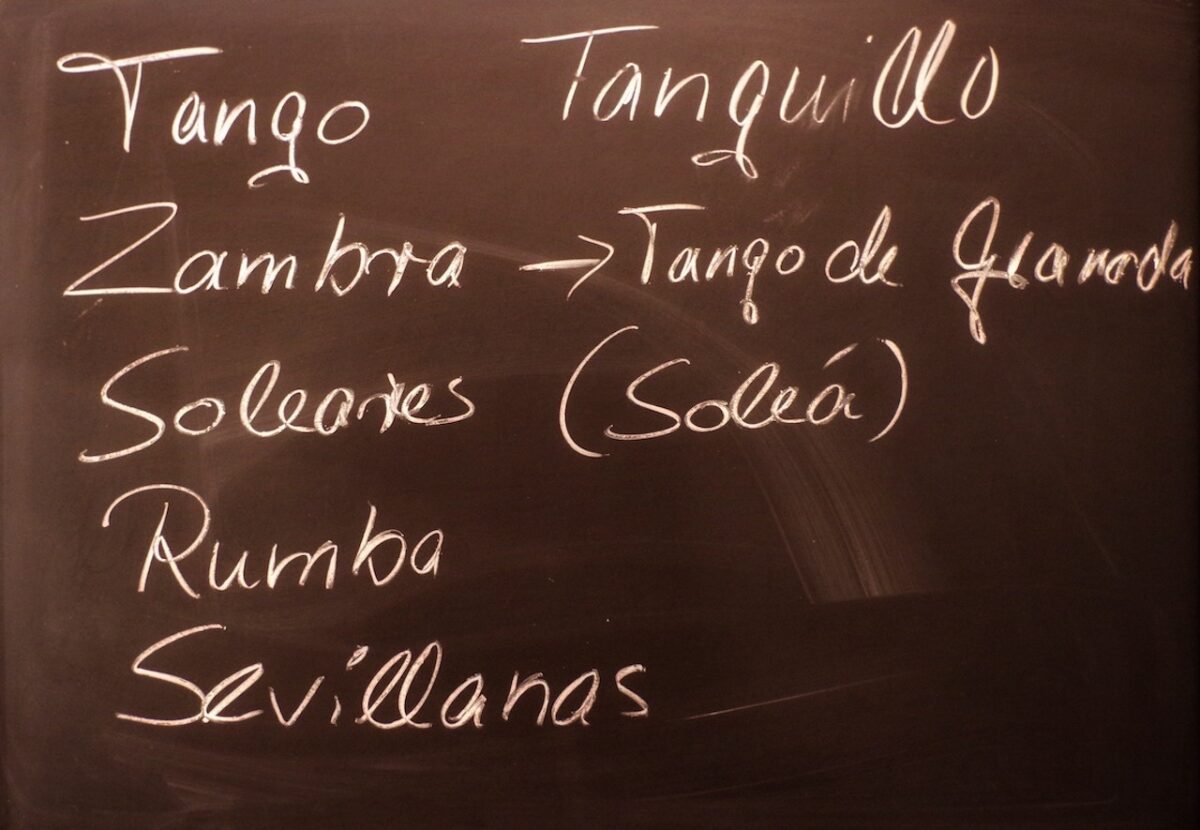 Tango Tanguillo
Zambra → Tango de Granada
Soleares (Soleá)
Rumba
Sevillanas